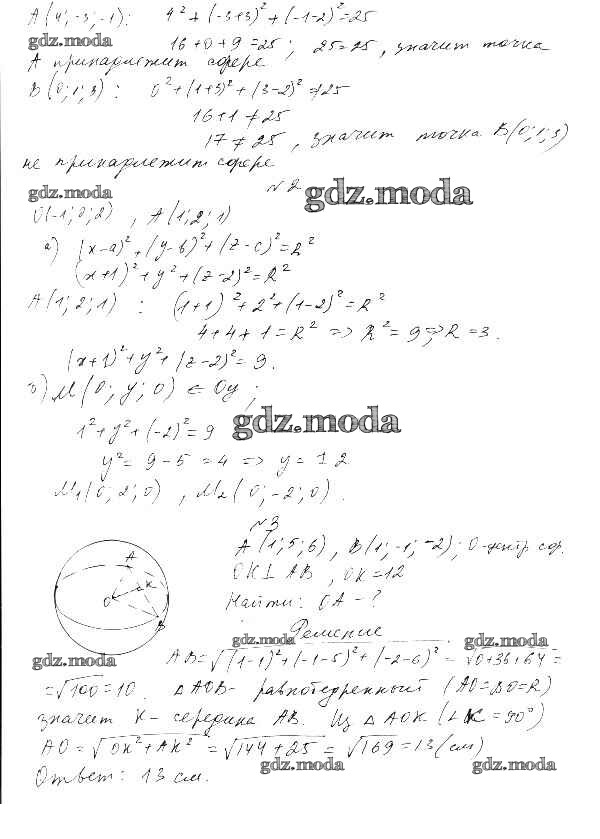 A(4; -3; -1): 4² + (-3+3)² + (-1-2)² = 25
gdz.moda
16 + 0 + 9 = 25; 25 = 25, значит точка
A принадлежит сфере
B(0; 1; 3): 0² + (1+3)² + (3-2)² ≠ 25
16+1 ≠ 25
17 ≠ 25, значит точка B(0; 1; 3)
не принадлежит сфере
gdz.moda
№2
gdz.moda
O(-1; 0; 2), A(1; 2; 1)
a) (x-a)² + (y-б)² + (z-c)² = R²
(x+1)² + y² + (z-2)² = R²
A(1; 2; 1): (1+1)² + 2² + (1-2)² = R²
4+4+1 = R² => R² = 9 => R = 3.
(x+1)² + y² + (z-2)² = 9.
б) M(0; y; 0) ∈ Oy;
1² + y² + (-2)² = 9
gdz.moda
y² = 9-5 = 4 => y = ±2
M₁(0; 2; 0), M₂(0; -2; 0).
№3
A(1; 5; 6), B(1; -1; -2); O-центр сф.
OK⊥AB, OK=12
Найти: OA-?
A
K
O
B
Решение
gdz.moda
gdz.moda
gdz.moda
AB = √(1-1)² + (-1-5)² + (-2-6)² = √0+36+64 =
= √100 = 10. △AOB- равнобедренный (AO=BO=R)
значит K- середина AB. Из △AOK (∠K = 90°)
AO = √OK² + AK² = √144+25 = √169 = 13 (см)
gdz.moda
gdz.moda
Ответ: 13 см.